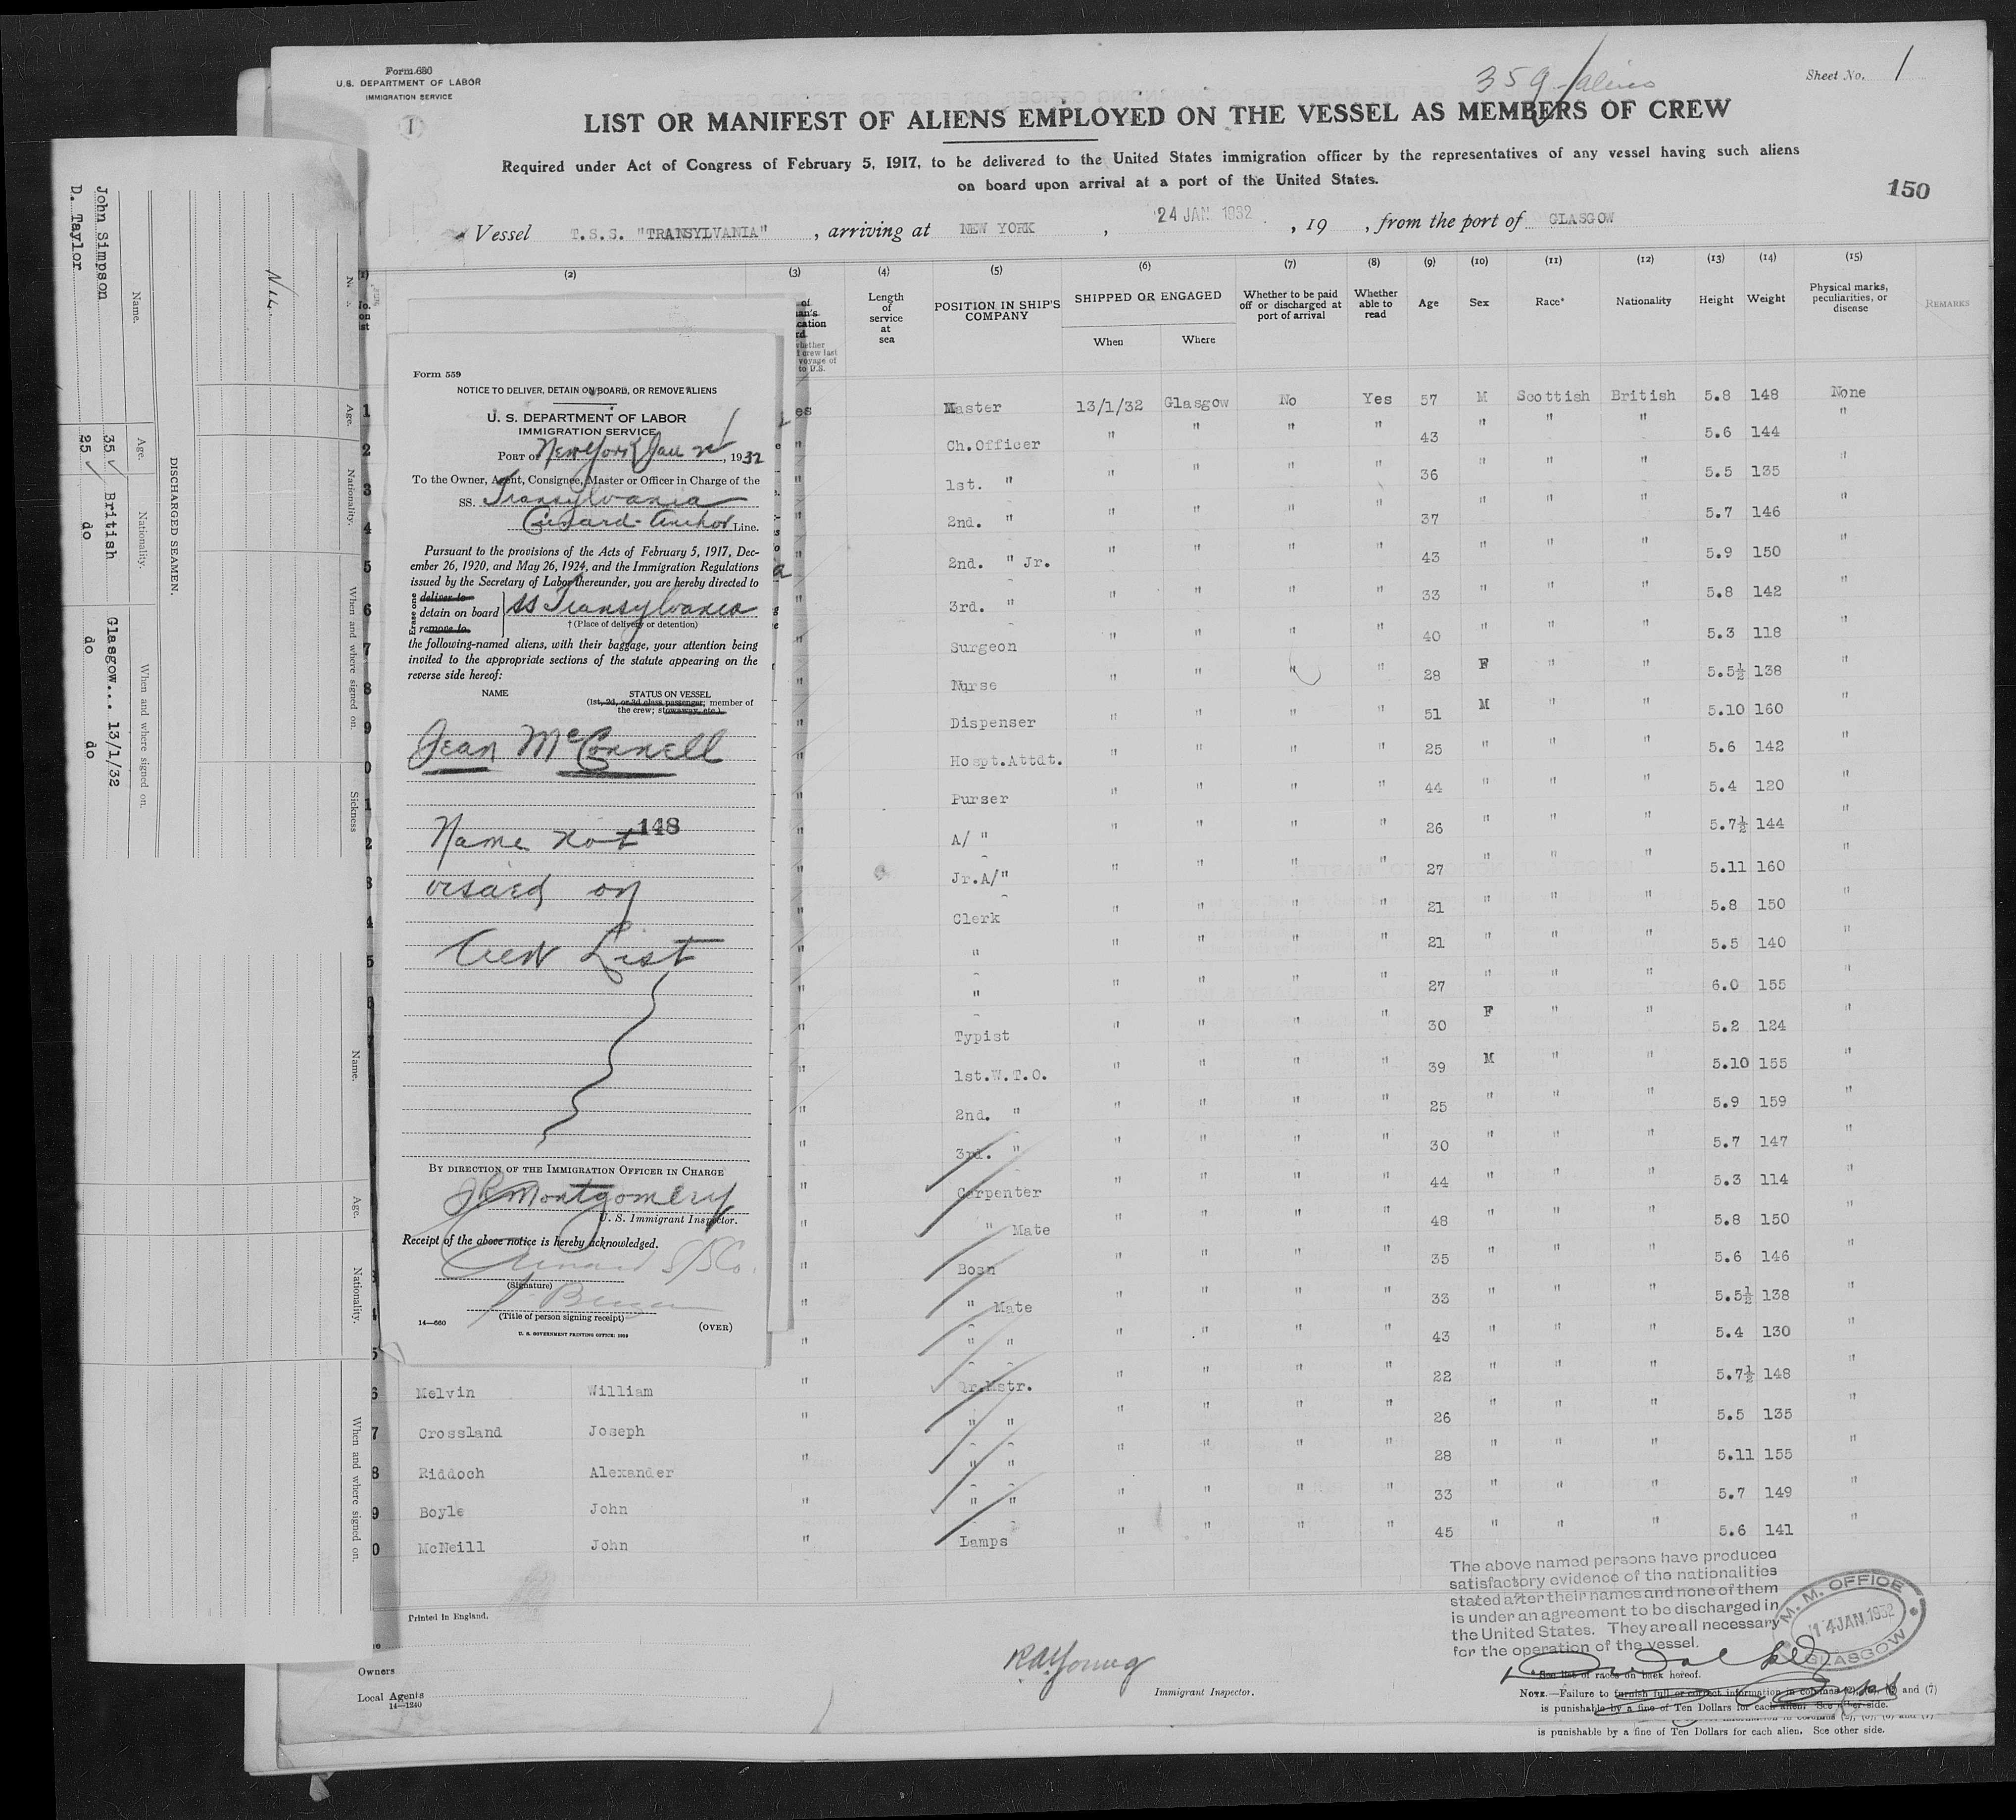 Form 680
U.S. DEPARTMENT OF LABOR
IMMIGRATION SERVICE
359 aliens
Sheet No. 1
LIST OR MANIFEST OF ALIENS EMPLOYED ON THE VESSEL AS MEMBERS OF CREW
Required under Act of Congress of February 5, 1917, to be delivered to the United States immigration officer by the representatives of any vessel having such aliens
on board upon arrival at a port of the United States.
150
Vessel T.S.S. "TRANSYLVANIA", arriving at NEW YORK, 24 JAN 1932, 19 , from the port of GLASGOW
(1) (2) (3) (4) (5) (6) (7) (8) (9) (10) (11) (12) (13) (14) (15)
Length of service at sea
POSITION IN SHIP'S COMPANY
SHIPPED OR ENGAGED
When Where
Whether to be paid off or discharged at port of arrival
Whether able to read
Age
Sex
Race*
Nationality
Height
Weight
Physical marks, peculiarities, or disease
REMARKS
Master 13/1/32 Glasgow No Yes 57 M Scottish British 5.8 148 None
Ch.Officer " " " " 43 " " " 5.6 144 "
1st. " " " " " 36 " " " 5.5 135 "
2nd. " " " " " 37 " " " 5.7 146 "
2nd. " Jr. " " " " 43 " " " 5.9 150 "
3rd. " " " " " 33 " " " 5.8 142 "
Surgeon " " " " 40 " " " 5.3 118 "
Nurse " " " " 28 F " " 5.5½ 138 "
Dispenser " " " " 51 M " " 5.10 160 "
Hospt.Attdt. " " " " 25 " " " 5.6 142 "
Purser " " " " 44 " " " 5.4 120 "
A/ " " " " " 26 " " " 5.7½ 144 "
Jr.A/" " " " " 27 " " " 5.11 160 "
Clerk " " " " 21 " " " 5.8 150 "
" " " " " 21 " " " 5.5 140 "
" " " " " 27 " " " 6.0 155 "
Typist " " " " 30 F " " 5.2 124 "
1st.W.T.O. " " " " 39 M " " 5.10 155 "
2nd. " " " " " 25 " " " 5.9 159 "
3rd. " " " " " 30 " " " 5.7 147 "
Carpenter " " " " 44 " " " 5.3 114 "
" Mate " " " " 48 " " " 5.8 150 "
Bosn " " " " 35 " " " 5.6 146 "
" Mate " " " " 33 " " " 5.5½ 138 "
" " " " " " 43 " " " 5.4 130 "
Melvin William " Qr.Mstr. " " " " 22 " " " 5.7½ 148 "
Crossland Joseph " " " " " " " 26 " " " 5.5 135 "
Riddoch Alexander " " " " " " " 28 " " " 5.11 155 "
Boyle John " " " " " " " 33 " " " 5.7 149 "
McNeill John " Lamps " " " " 45 " " " 5.6 141 "
Form 559
NOTICE TO DELIVER, DETAIN ON BOARD, OR REMOVE ALIENS
U. S. DEPARTMENT OF LABOR
IMMIGRATION SERVICE
PORT OF New York Jan 24, 1932
To the Owner, Agent, Consignee, Master or Officer in Charge of the
SS. Transylvania
Cunard-Anchor Line.
Pursuant to the provisions of the Acts of February 5, 1917, Dec-
ember 26, 1920, and May 26, 1924, and the Immigration Regulations
issued by the Secretary of Labor thereunder, you are hereby directed to
Erase one
deliver to
detain on board SS Transylvania
remove to
† (Place of delivery or detention)
the following-named aliens, with their baggage, your attention being
invited to the appropriate sections of the statute appearing on the
reverse side hereof:
NAME
STATUS ON VESSEL
(1st, 2d, or 3d class passenger; member of
the crew; stowaway, etc.)
Jean McConnell
148
Name not
visaed on
Crew List
BY DIRECTION OF THE IMMIGRATION OFFICER IN CHARGE
Montgomery
U. S. Immigrant Inspector.
Receipt of the above notice is hereby acknowledged.
Cunard S/S Co.
(Signature)
(Title of person signing receipt)
14—660
U. S. GOVERNMENT PRINTING OFFICE: 1929
(OVER)
DISCHARGED SEAMEN.
Name. Age. Nationality. When and where signed on.
John Simpson 35 British Glasgow... 13/1/32
D. Taylor 25 do do do
Nil
Age. Nationality. When and where signed on. Sickness
Name. Age. Nationality. When and where signed on.
Printed in England.
Owners
Local Agents
14—1240
R.A. Young
Immigrant Inspector.
The above named persons have produced
satisfactory evidence of the nationalities
stated after their names and none of them
is under an agreement to be discharged in
the United States. They are all necessary
for the operation of the vessel.
M. M. OFFICE
14 JAN. 1932
GLASGOW
* See list of races on back hereof.
NOTE.—Failure to furnish full or correct information in columns (2), (5), (6) and (7)
is punishable by a fine of Ten Dollars for each alien. See other side.
is punishable by a fine of Ten Dollars for each alien. See other side.